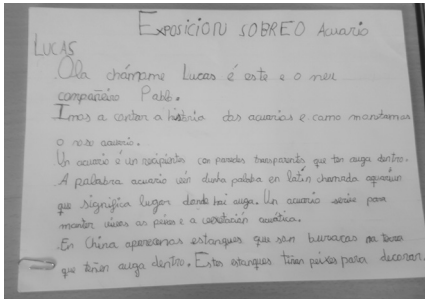 EXPOSICION SOBRE O Acuario
LUCAS
Ola chámome Lucas é este e o meu
compañeiro Pablo.
Imos a contar a historia dos acuarios e como montamos
o noso acuario.
Un acuario é un recipientes con paredes transparentes que ten auga dentro.
A palabra acuario ven dunha palaba en latín chamada aquarium
que significa lugar donde hai auga. Un acuario serve para
manter vivos as peixes e a vexetación acuática.
En China aparecemos estanques que son buracos na terra
que teñen auga dentro. Estes estanques tiñan peixes para decorar.